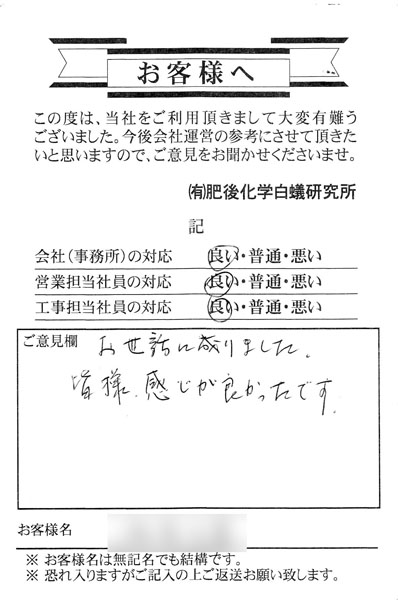 お客様へ
この度は、当社をご利用頂きまして大変有難う
ございました。今後会社運営の参考にさせて頂きた
いと思いますので、ご意見をお聞かせくださいませ。
㈲肥後化学白蟻研究所
記
会社(事務所)の対応 良い・普通・悪い
営業担当社員の対応 良い・普通・悪い
工事担当社員の対応 良い・普通・悪い
ご意見欄 お世話に成りました。
皆様、感じが良かったです。
お客様名
※ お客様名は無記名でも結構です。
※ 恐れ入りますがご記入の上ご返送お願い致します。